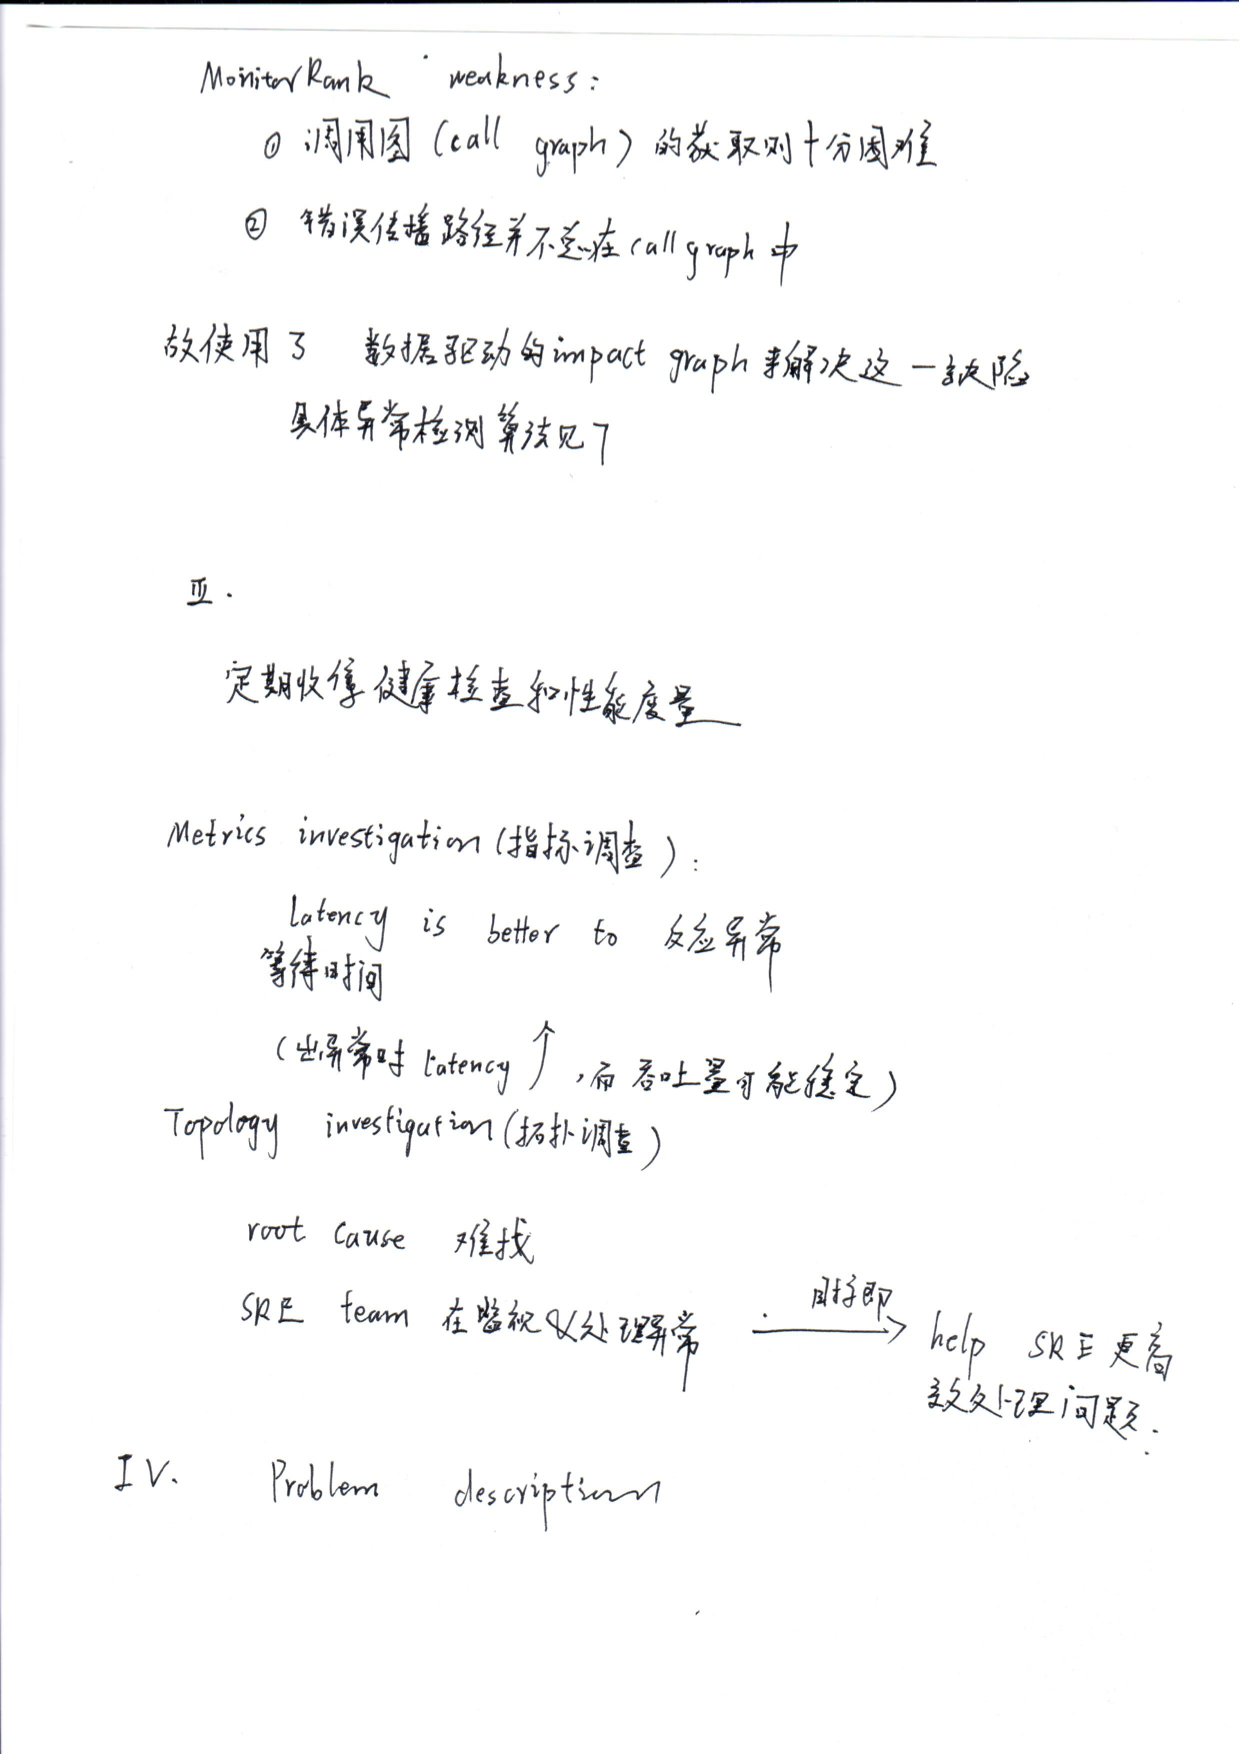 MonitorRank weakness:
① 调用图 (call graph) 的获取则十分困难
② 错误传播路径并不总在call graph中
故使用了 数据驱动的impact graph来解决这一缺陷
具体异常检测算法见7
Ⅲ.
定期收集健康检查和性能度量
Metrics investigation (指标调查):
Latency is better to 反应异常
等待时间
(出异常时 latency ↑, 而吞吐量可能稳定)
Topology investigation (拓扑调查)
root cause 难找
SRE team 在监视&处理异常 目标即 → help SRE更高
效处理问题.
IV. Problem description